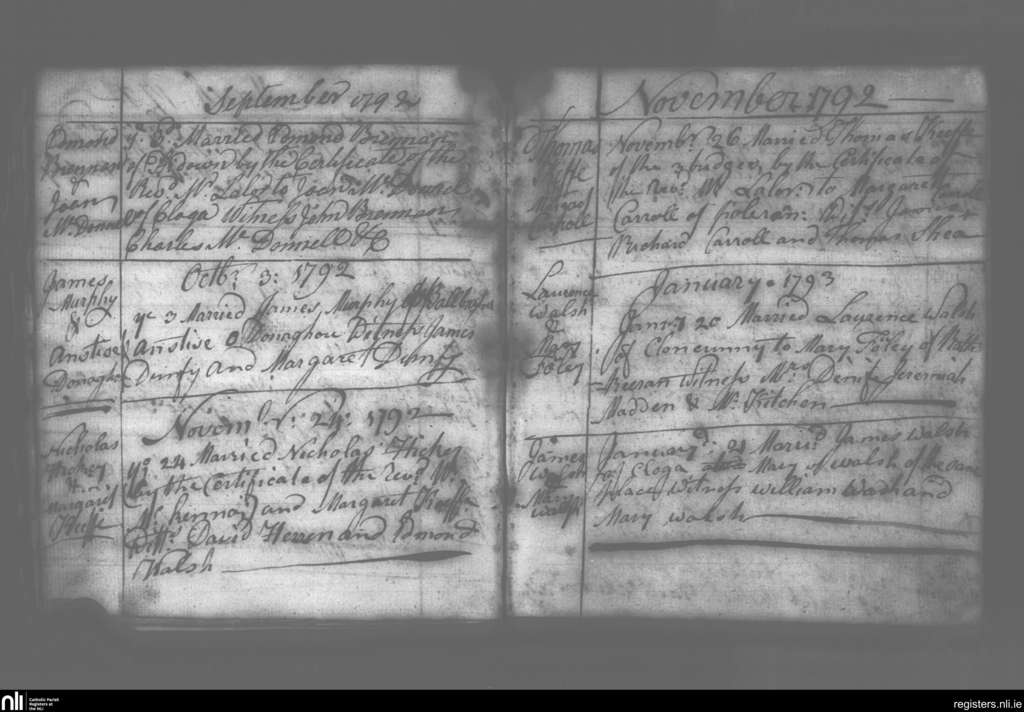 September 1792
Edmond
Brennan
&
Joan
Mc Donnell
ye 3d Married Edmond Brennan
of by the Certificate of the
Revd. Mr. Lalor to Joan Mc Donnell
of Cloga Witness John Brennan
Charles Mc Donnell &c
James
Murphy
&
Anstise
Donagho
Octbr. 3: 1792
ye 3 Married James Murphy of
Anstise O Donaghou Witness James
Demfy and Margaret Demfy
Nicholas
Hickey
&
Margaret
Keeffe
Novembr. 24: 1792
ye 24 Married Nicholas Hickey
by the Certificate of the Revd. Mr.
and Margaret Keeffe
Witts. David Herren and Edmond
Walsh
November 1792
Thomas
Keeffe
&
Margt
Carroll
Novembr. 26 Married Thomas Keeffe
of the 3 bridges by the Certificate of
the Revd. Mr. Lalor to Margarett
Carroll of
Richard Carroll and Thomas Shea
Laurence
Walsh
&
Mary
Foley
January 1793
Jany 20 Married Laurence Walsh
of Clonecunny to Mary Foley of
Witness Mrs. Jeremiah
Madden & Mr. Kitchen
James
Walsh
&
Mary
Walsh
January: 21 Maried James Walsh
of Cloga Mary of Walsh of the same
place witness William Wade and
Mary Walsh
nli
Catholic Parish
Registers at
the NLI
registers.nli.ie